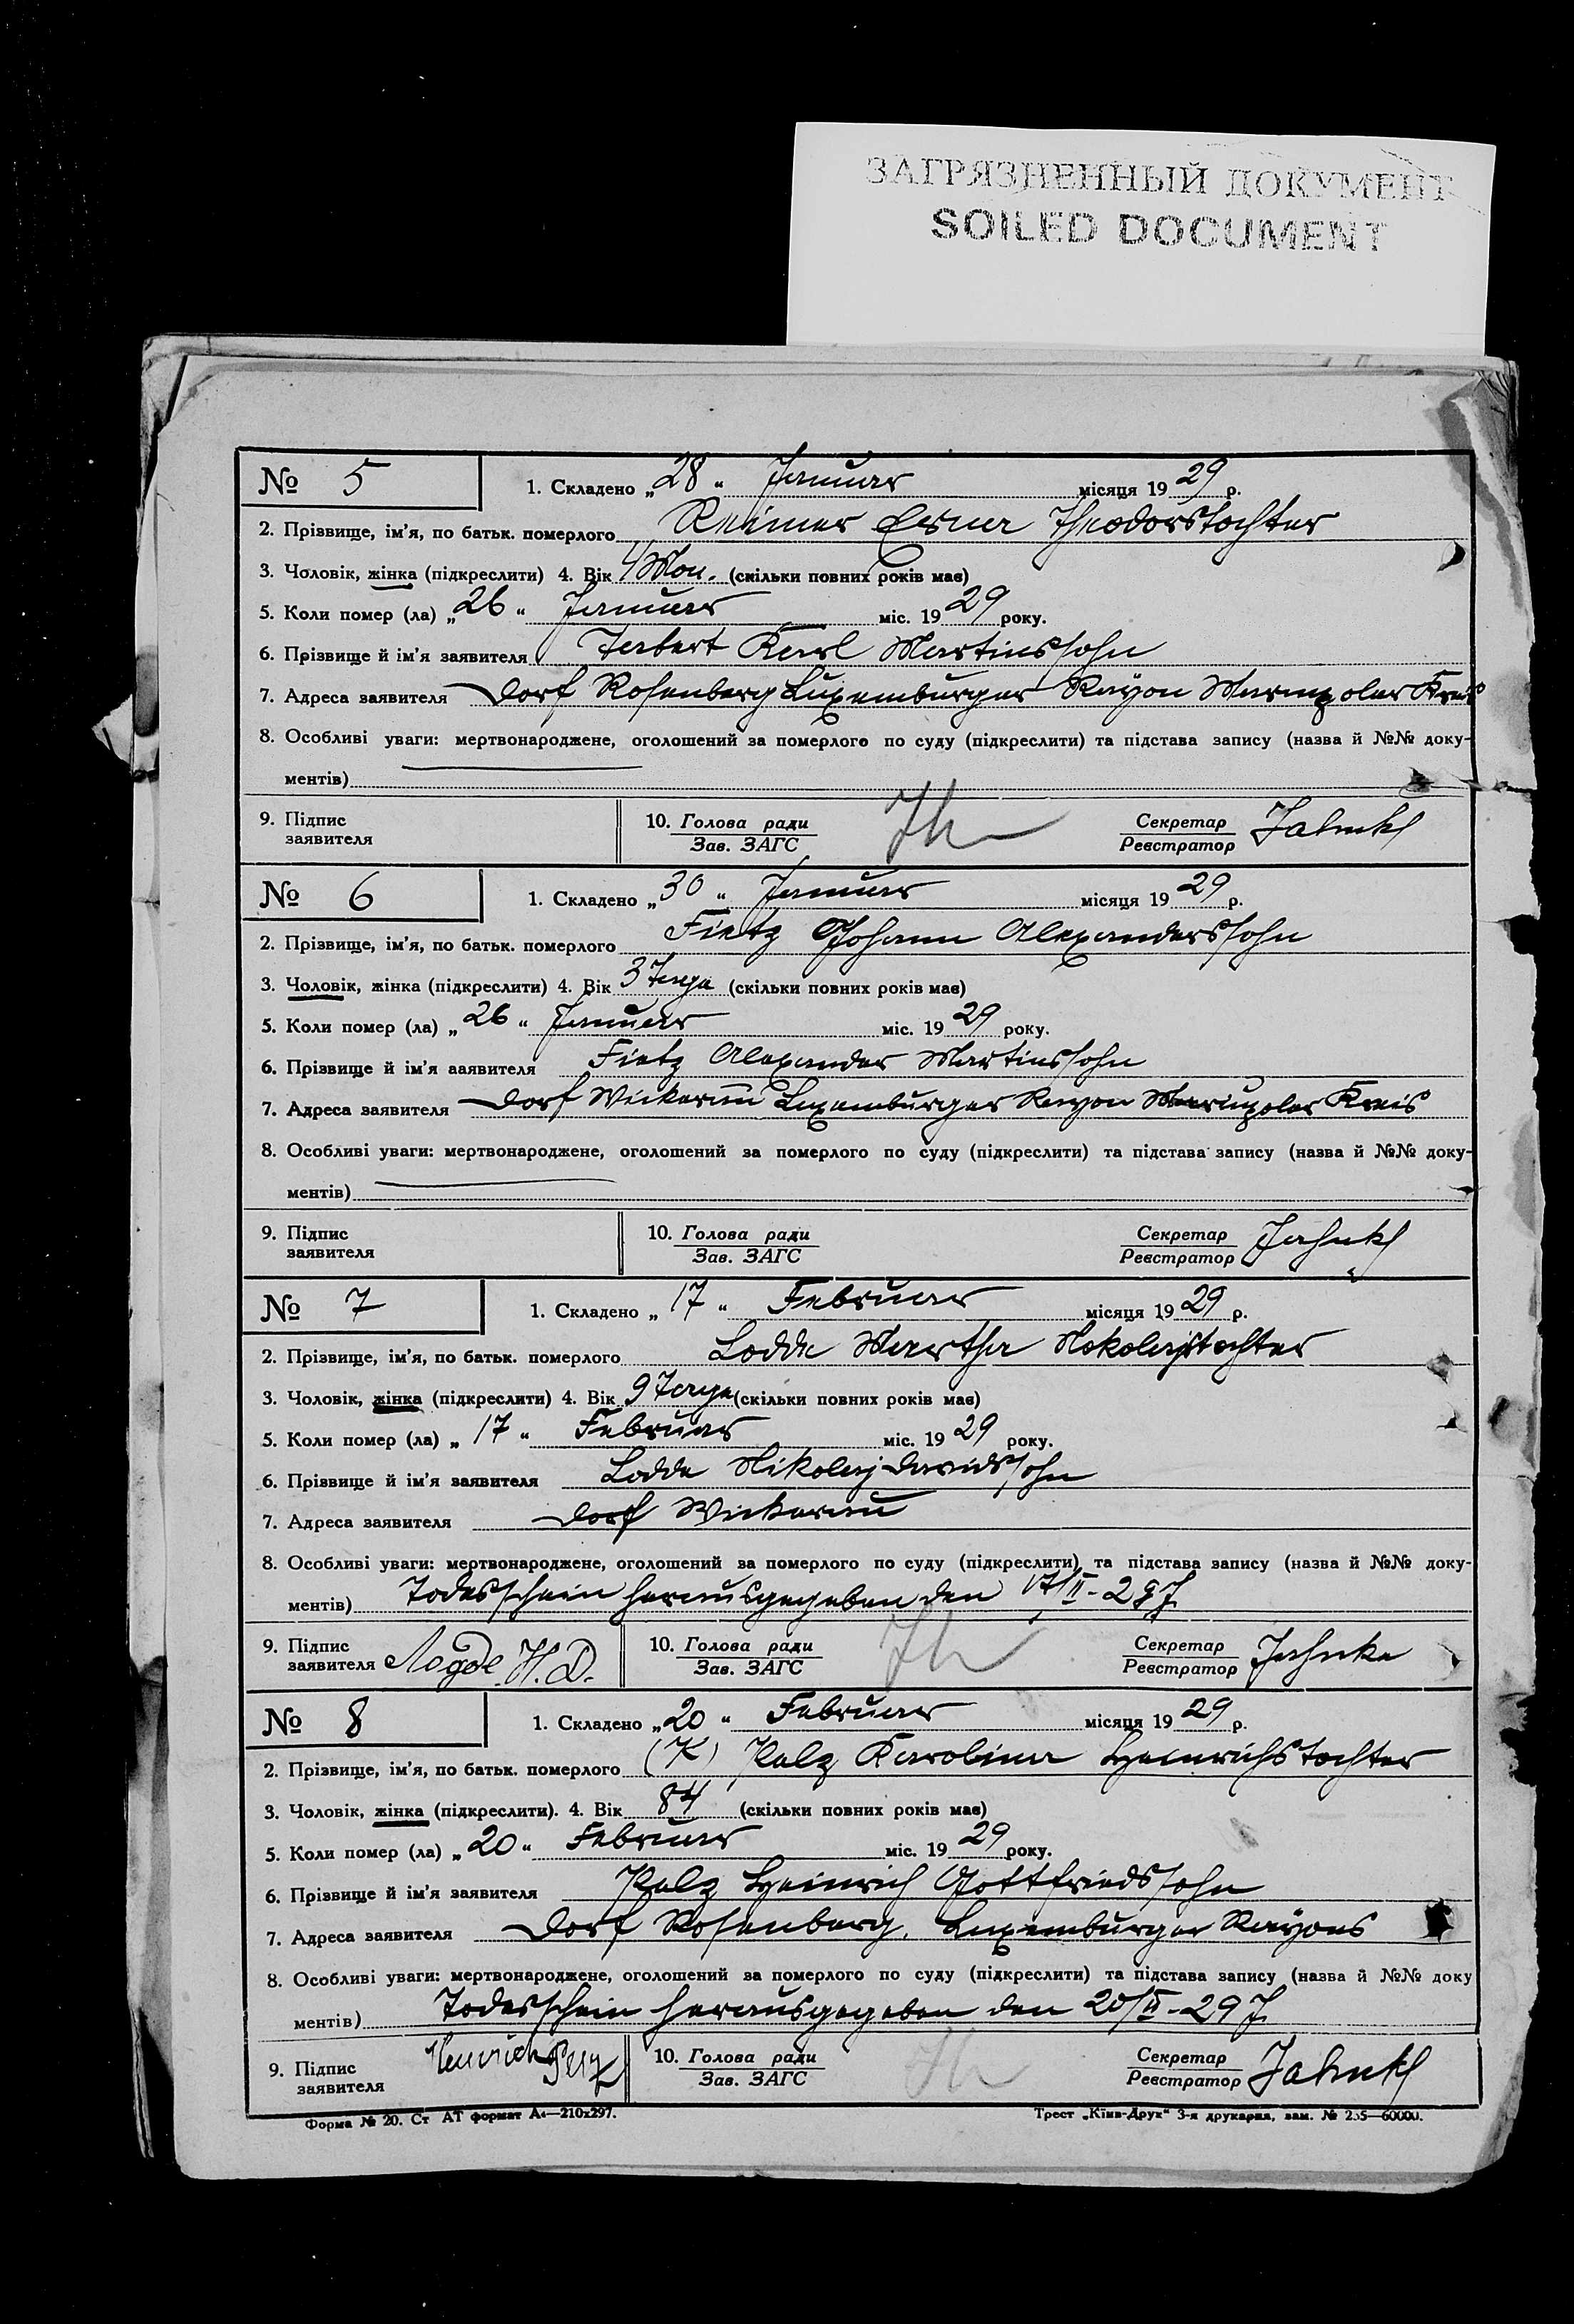 ЗАГРЯЗНЕННЫЙ ДОКУМЕНТ
SOILED DOCUMENT
№ 5
1. Складено „28“ Januar місяця 1929 р.
2. Прізвище, ім'я, по батьк. померлого Reimer Erna Theodorstochter
3. Чоловік, жінка (підкреслити) 4. Вік 4 Mon. (скільки повних років має)
5. Коли помер (ла) „26“ Januar міс. 1929 року.
6. Прізвище й ім'я заявителя Karl Martinssohn
7. Адреса заявителя Dorf Rosenberg Luxemburger Rayon Mariupoler Kreis
8. Особливі уваги: мертвонароджене, оголошений за померлого по суду (підкреслити) та підстава запису (назва й №№ доку-
ментів)
9. Підпис заявителя
10. Голова ради Зав. ЗАГС
Секретар Реєстратор Jahnke
№ 6
1. Складено „30“ Januar місяця 1929 р.
2. Прізвище, ім'я, по батьк. померлого Fietz Johann Alexanderssohn
3. Чоловік, жінка (підкреслити) 4. Вік 3 Tage (скільки повних років має)
5. Коли помер (ла) „26“ Januar міс. 1929 року.
6. Прізвище й ім'я заявителя Fietz Alexander Martinssohn
7. Адреса заявителя Dorf Wickerau Luxemburger Rayon Mariupoler Kreis
8. Особливі уваги: мертвонароджене, оголошений за померлого по суду (підкреслити) та підстава запису (назва й №№ доку-
ментів)
9. Підпис заявителя
10. Голова ради Зав. ЗАГС
Секретар Реєстратор Jahnke
№ 7
1. Складено „17“ Februar місяця 1929 р.
2. Прізвище, ім'я, по батьк. померлого Lodde Martha Nokolajstochter
3. Чоловік, жінка (підкреслити) 4. Вік 9 Tage (скільки повних років має)
5. Коли помер (ла) „17“ Februar міс. 1929 року.
6. Прізвище й ім'я заявителя Lodde Nikolaj Davidssohn
7. Адреса заявителя Dorf Wickerau
8. Особливі уваги: мертвонароджене, оголошений за померлого по суду (підкреслити) та підстава запису (назва й №№ доку-
ментів) Todesschein herausgegeben den 17/II-29 J.
9. Підпис заявителя Лодде Н.Д.
10. Голова ради Зав. ЗАГС
Секретар Реєстратор Jahnke
№ 8
1. Складено „20“ Februar місяця 1929 р.
2. Прізвище, ім'я, по батьк. померлого (K) Pelz Karolina Heinrichstochter
3. Чоловік, жінка (підкреслити). 4. Вік 84 (скільки повних років має)
5. Коли помер (ла) „20“ Februar міс. 1929 року.
6. Прізвище й ім'я заявителя Pelz Heinrich Gottfriedssohn
7. Адреса заявителя Dorf Rosenberg, Luxemburger Rayons
8. Особливі уваги: мертвонароджене, оголошений за померлого по суду (підкреслити) та підстава запису (назва й №№ доку
ментів) Todesschein herausgegeben den 20/II-29 J.
9. Підпис заявителя Heinrich Pelz
10. Голова ради Зав. ЗАГС
Секретар Реєстратор Jahnke
Форма № 20. Ст АТ формат А4—210x297.
Трест „Київ-Друк“ 3-я друкарня, зам. № 235—60000.